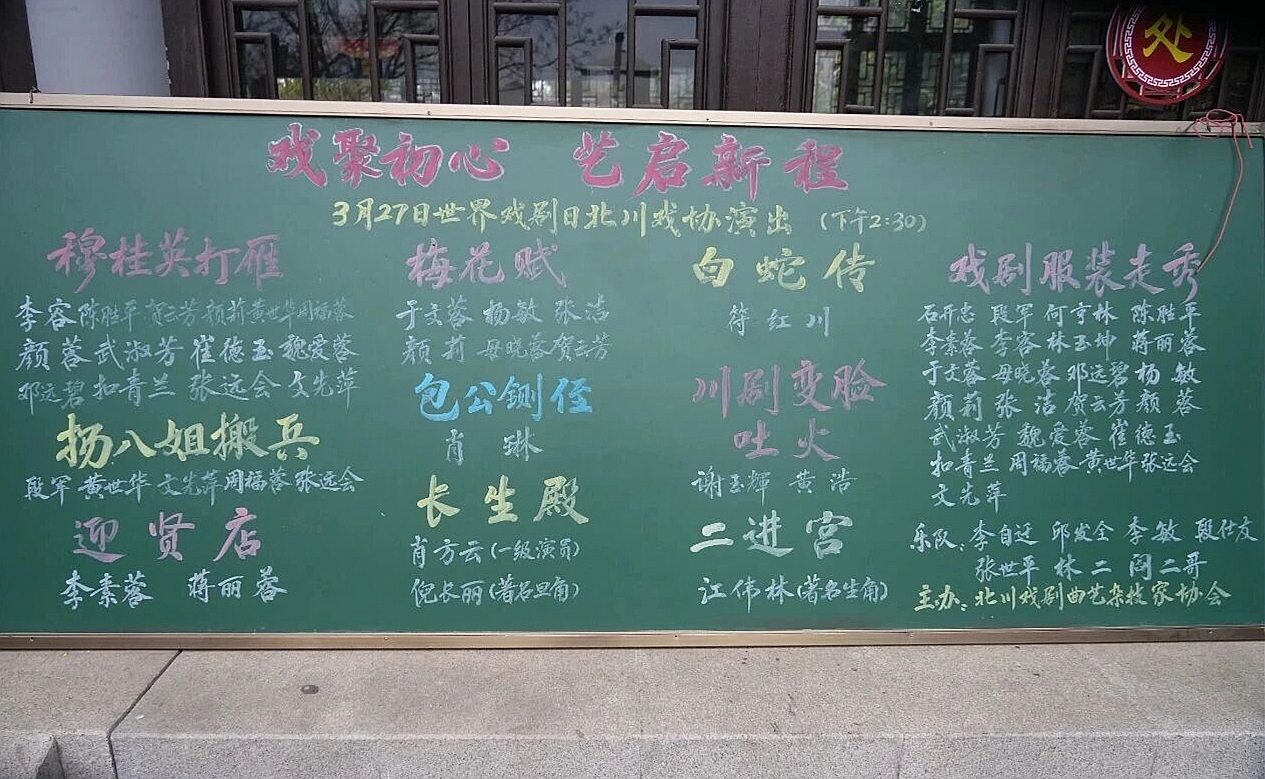 处
戏聚初心 艺启新程
3月27日世界戏剧日北川戏协演出 (下午2:30)
穆桂英打雁
李容陈胜平贺云芳颜莉黄世华周福蓉
颜蓉武淑芳崔德玉魏爱蓉
邓远碧和青兰张远会文先萍
扬八姐搬兵
段军黄世华文先萍周福蓉张远会
迎贤店
李素蓉 蒋丽蓉
梅花赋
于文蓉 杨敏 张洁
颜莉 母晓蓉贺云芳
包公铡侄
肖琳
长生殿
肖方云(一级演员)
倪长丽(著名旦角)
白蛇传
符红川
川剧变脸
吐火
谢玉辉 黄浩
二进宫
江伟林(著名生角)
戏剧服装走秀
石开忠 段军 何亨林 陈胜平
李素蓉 李容 林玉坤 蒋丽蓉
于文蓉 母晓蓉 邓远碧 杨敏
颜莉 张洁 贺云芳 颜蓉
武淑芳 魏爱蓉 崔德玉
和青兰 周福蓉 黄世华张远会
文先萍
乐队:李自迁 邱发全 李敏 段仕友
张世平 林二 闵二哥
主办:北川戏剧曲艺杂技家协会